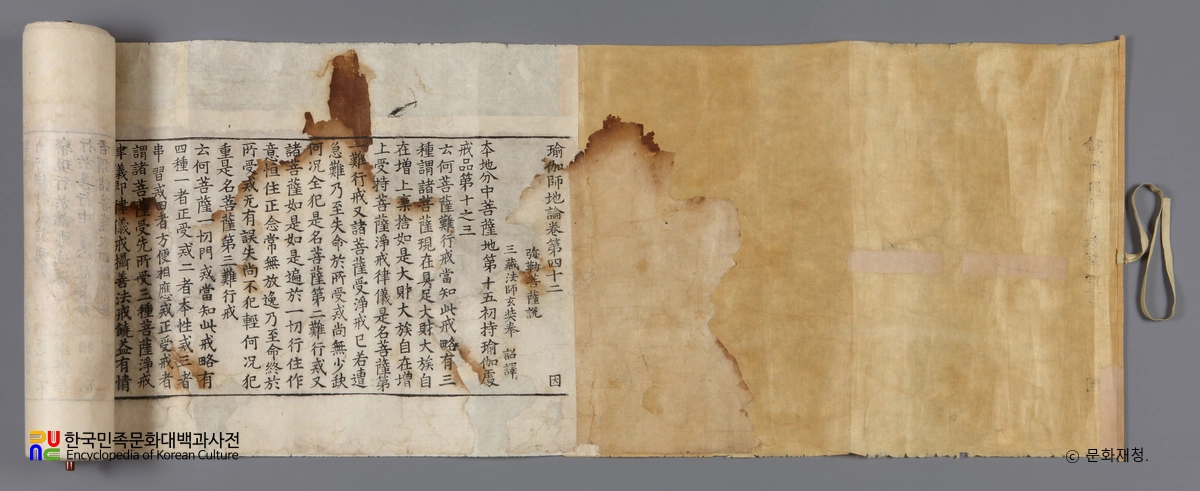 瑜伽師地論卷第四十二
因
弥勒菩薩說
三藏法師玄奘奉 詔譯
本地分中菩薩地第十五初持瑜伽處
戒品第十之三
云何菩薩難行戒當知此戒略有三
種謂諸菩薩現在具足大財大族自
在增上棄捨如是大財大族自在增
上受持菩薩淨戒律儀是名菩薩第
一難行戒又諸菩薩受淨戒已若遭
急難乃至失命於所受戒尚無少缺
何况全犯是名菩薩第二難行戒又
諸菩薩如是如是遍於一切行住作
意恒住正念常無放逸乃至命終於
所受戒无有誤失尚不犯輕何况犯
重是名菩薩第三難行戒
云何菩薩一切門戒當知此戒略有
四種一者正受戒二者本性戒三者
串習戒四者方便相應戒正受戒者
謂諸菩薩受先所受三種菩薩淨戒
律儀即律儀戒攝善法戒饒益有情
한국민족문화대백과사전
Encyclopedia of Korean Culture
© 문화재청.